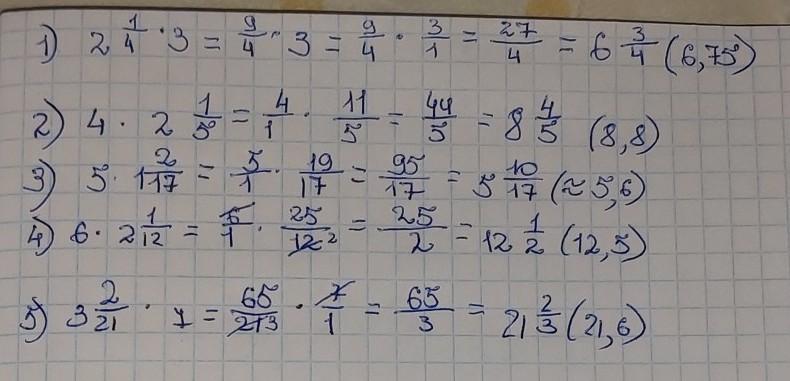 1) 2 1/4 · 3 = 9/4 · 3 = 9/4 · 3/1 = 27/4 = 6 3/4 (6,75)
2) 4 · 2 1/5 = 4/1 · 11/5 = 44/5 = 8 4/5 (8,8)
3) 5 · 1 2/17 = 5/1 · 19/17 = 95/17 = 5 10/17 (≈ 5,6)
4) 6 · 2 1/12 = 6/1 · 25/12 2 = 25/2 = 12 1/2 (12,5)
5) 3 2/21 · 7 = 65/21 3 · 7/1 = 65/3 = 21 2/3 (21,6)